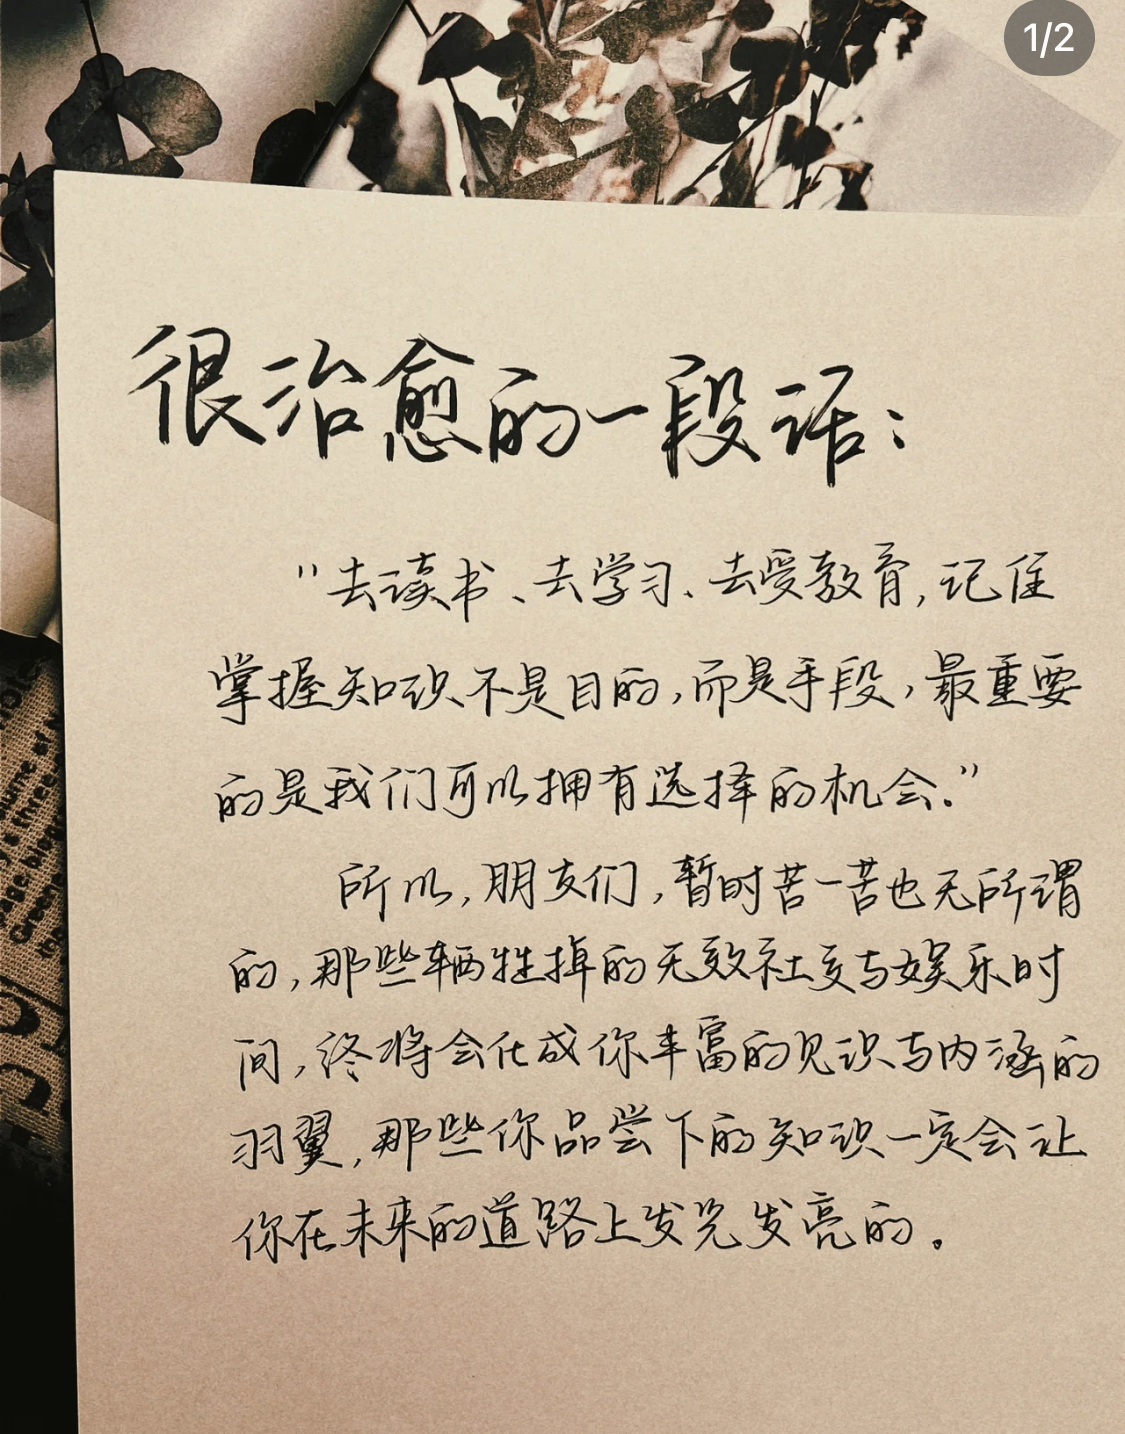 1/2
很治愈的一段话：
"去读书、去学习、去受教育，记住
掌握知识不是目的，而是手段，最重要
的是我们可以拥有选择的机会."
所以，朋友们，暂时苦一苦也无所谓
的，那些牺牲掉的无效社交与娱乐时
间，终将会化成你丰富的见识与内涵的
羽翼，那些你品尝下的知识一定会让
你在未来的道路上发光发亮的。